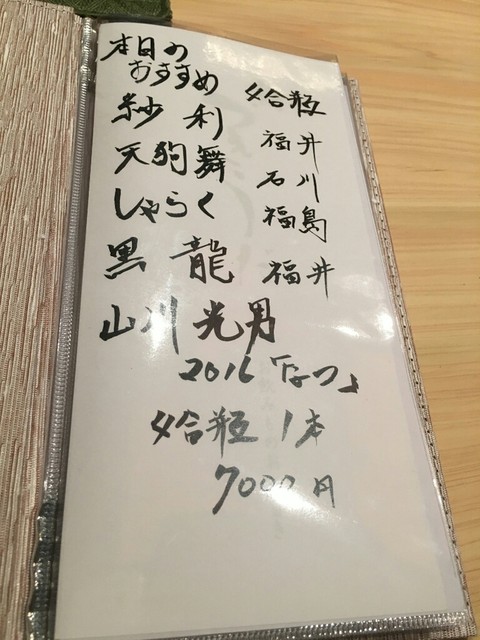 本日の
おすすめ
紗利 始瓶
福井
天狗舞 石川
しゃらく 福島
黒龍 福井
山川光男
2016「なつ」
始瓶 1本
7000円